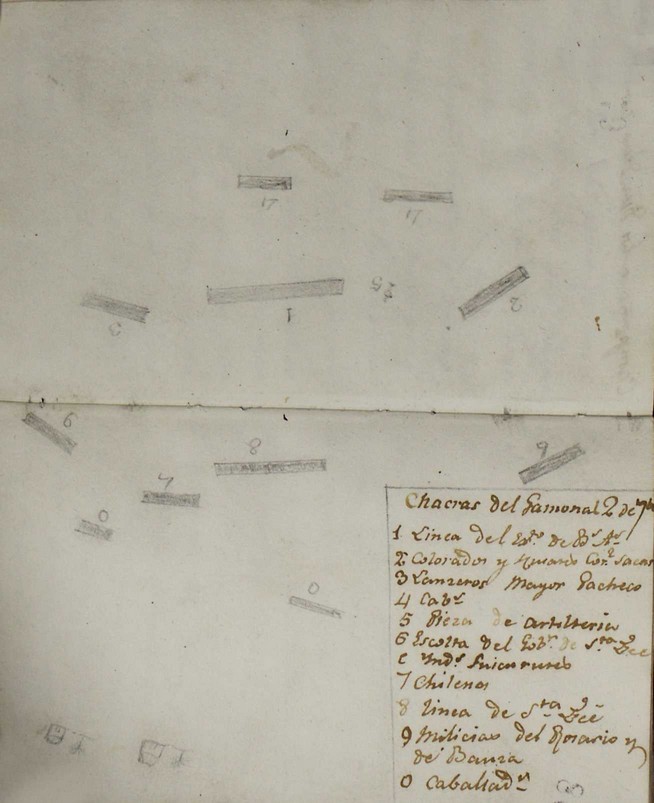 17
17
3
1
25
2
6
8
9
7
0
0
Chacras del Gamonal 2 de 7bre
1 Linea del Exto de Bs As
2 Colorados y Husares Conl
3 Lanzeros Mayor Pacheco
4 Cabs
5 Pieza de artilleria
6 Escolta del Gobr de Sta Fee
C Inds Guicurues
7 Chilenos
8 linea de Sta Fee
9 Milicias del Rosario y
de Banza
0 Caballads